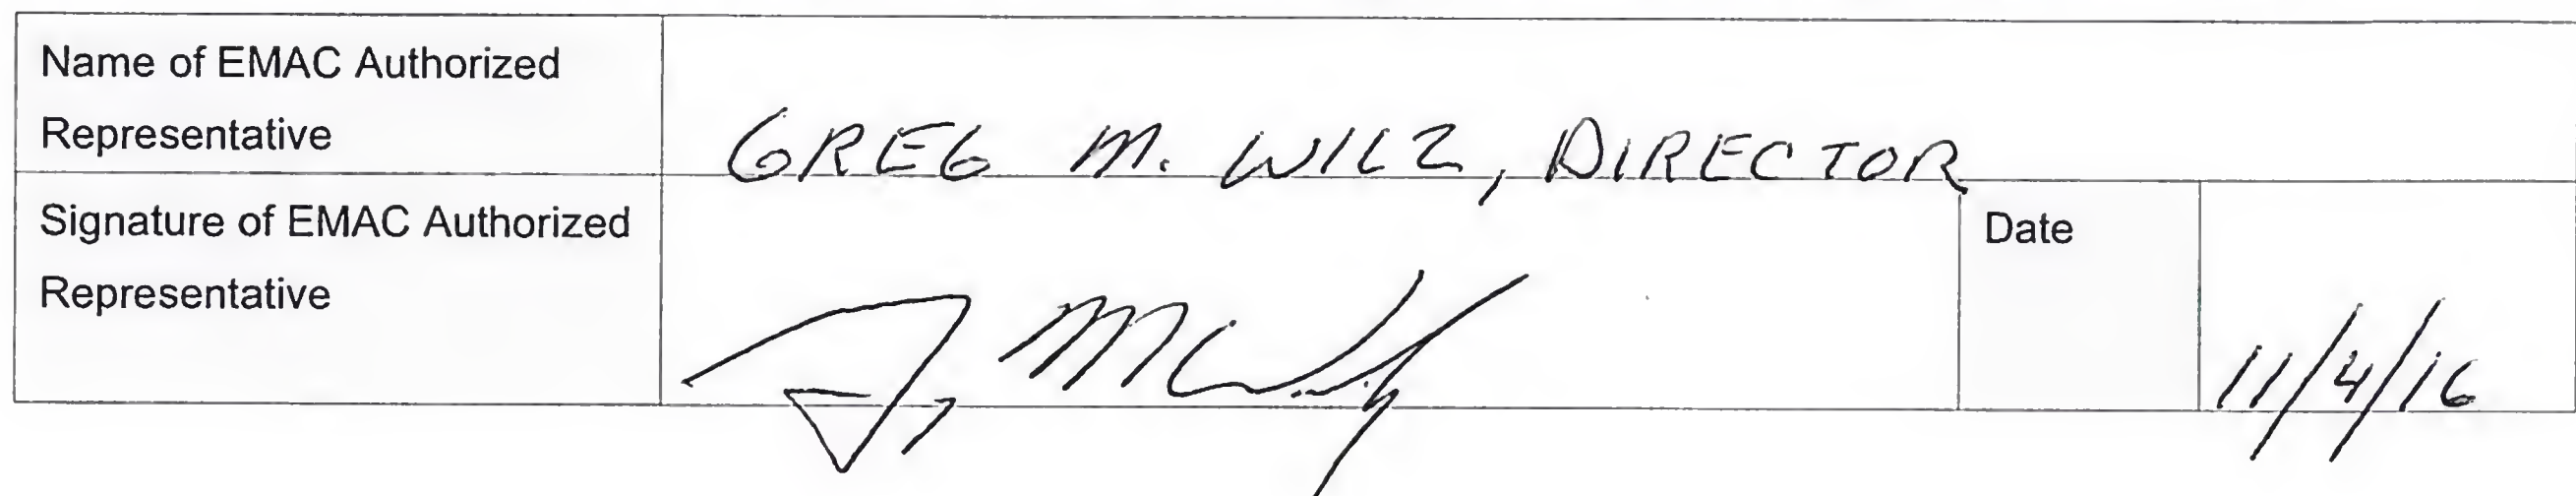 Name of EMAC Authorized
Representative
GREG M. WILZ, DIRECTOR
Signature of EMAC Authorized
Representative
Date
11/4/16